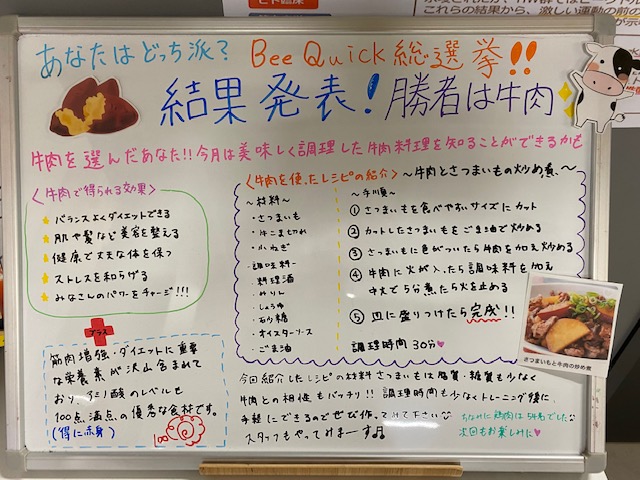 あなたはどっち派？ Bee Quick 総選挙!!
結果発表！勝者は牛肉
牛肉を選んだあなた!!今月は美味しく調理した牛肉料理を知ることができるかも
〈牛肉で得られる効果〉
★バランスよくダイエットできる
★肌や髪など美容を整える
★健康で丈夫な体を保つ
★ストレスを和らげる
★みなさんのパワーをチャージ!!!
プラス
筋肉増強・ダイエットに重要
な栄養素が沢山含まれて
おり、アミノ酸のレベルも
100点満点の優秀な食材です。
(得に赤身)
100
〈牛肉を使ったレシピの紹介〉〜牛肉とさつまいもの炒め煮〜
〜材料〜
・さつまいも
・牛こま切れ
・小ねぎ
-調味料-
・料理酒
・みりん
・しょうゆ
・砂糖
・オイスターソース
・ごま油
〜手順〜
①さつまいもを食べやすいサイズにカット
②カットしたさつまいもをごま油で炒める
③さつまいもに色がついたら牛肉を加え炒める
④牛肉に火が入ったら調味料を加え
中火で5分煮たら火を止める
⑤皿に盛りつけたら完成!!
調理時間30分♥
さつまいもと牛肉の炒め煮
今回紹介したレシピの材料さつまいもは脂質・糖質も少なく
牛肉との相性もバッチリ!!調理時間も少なくトレーニング後に
手軽にできるのでぜひ作ってみて下さい☺
スタッフもやってみまーす♫
ちなみに鶏肉は54名でした
次回もお楽しみに♥
これらの結果から、激しい運動の前の